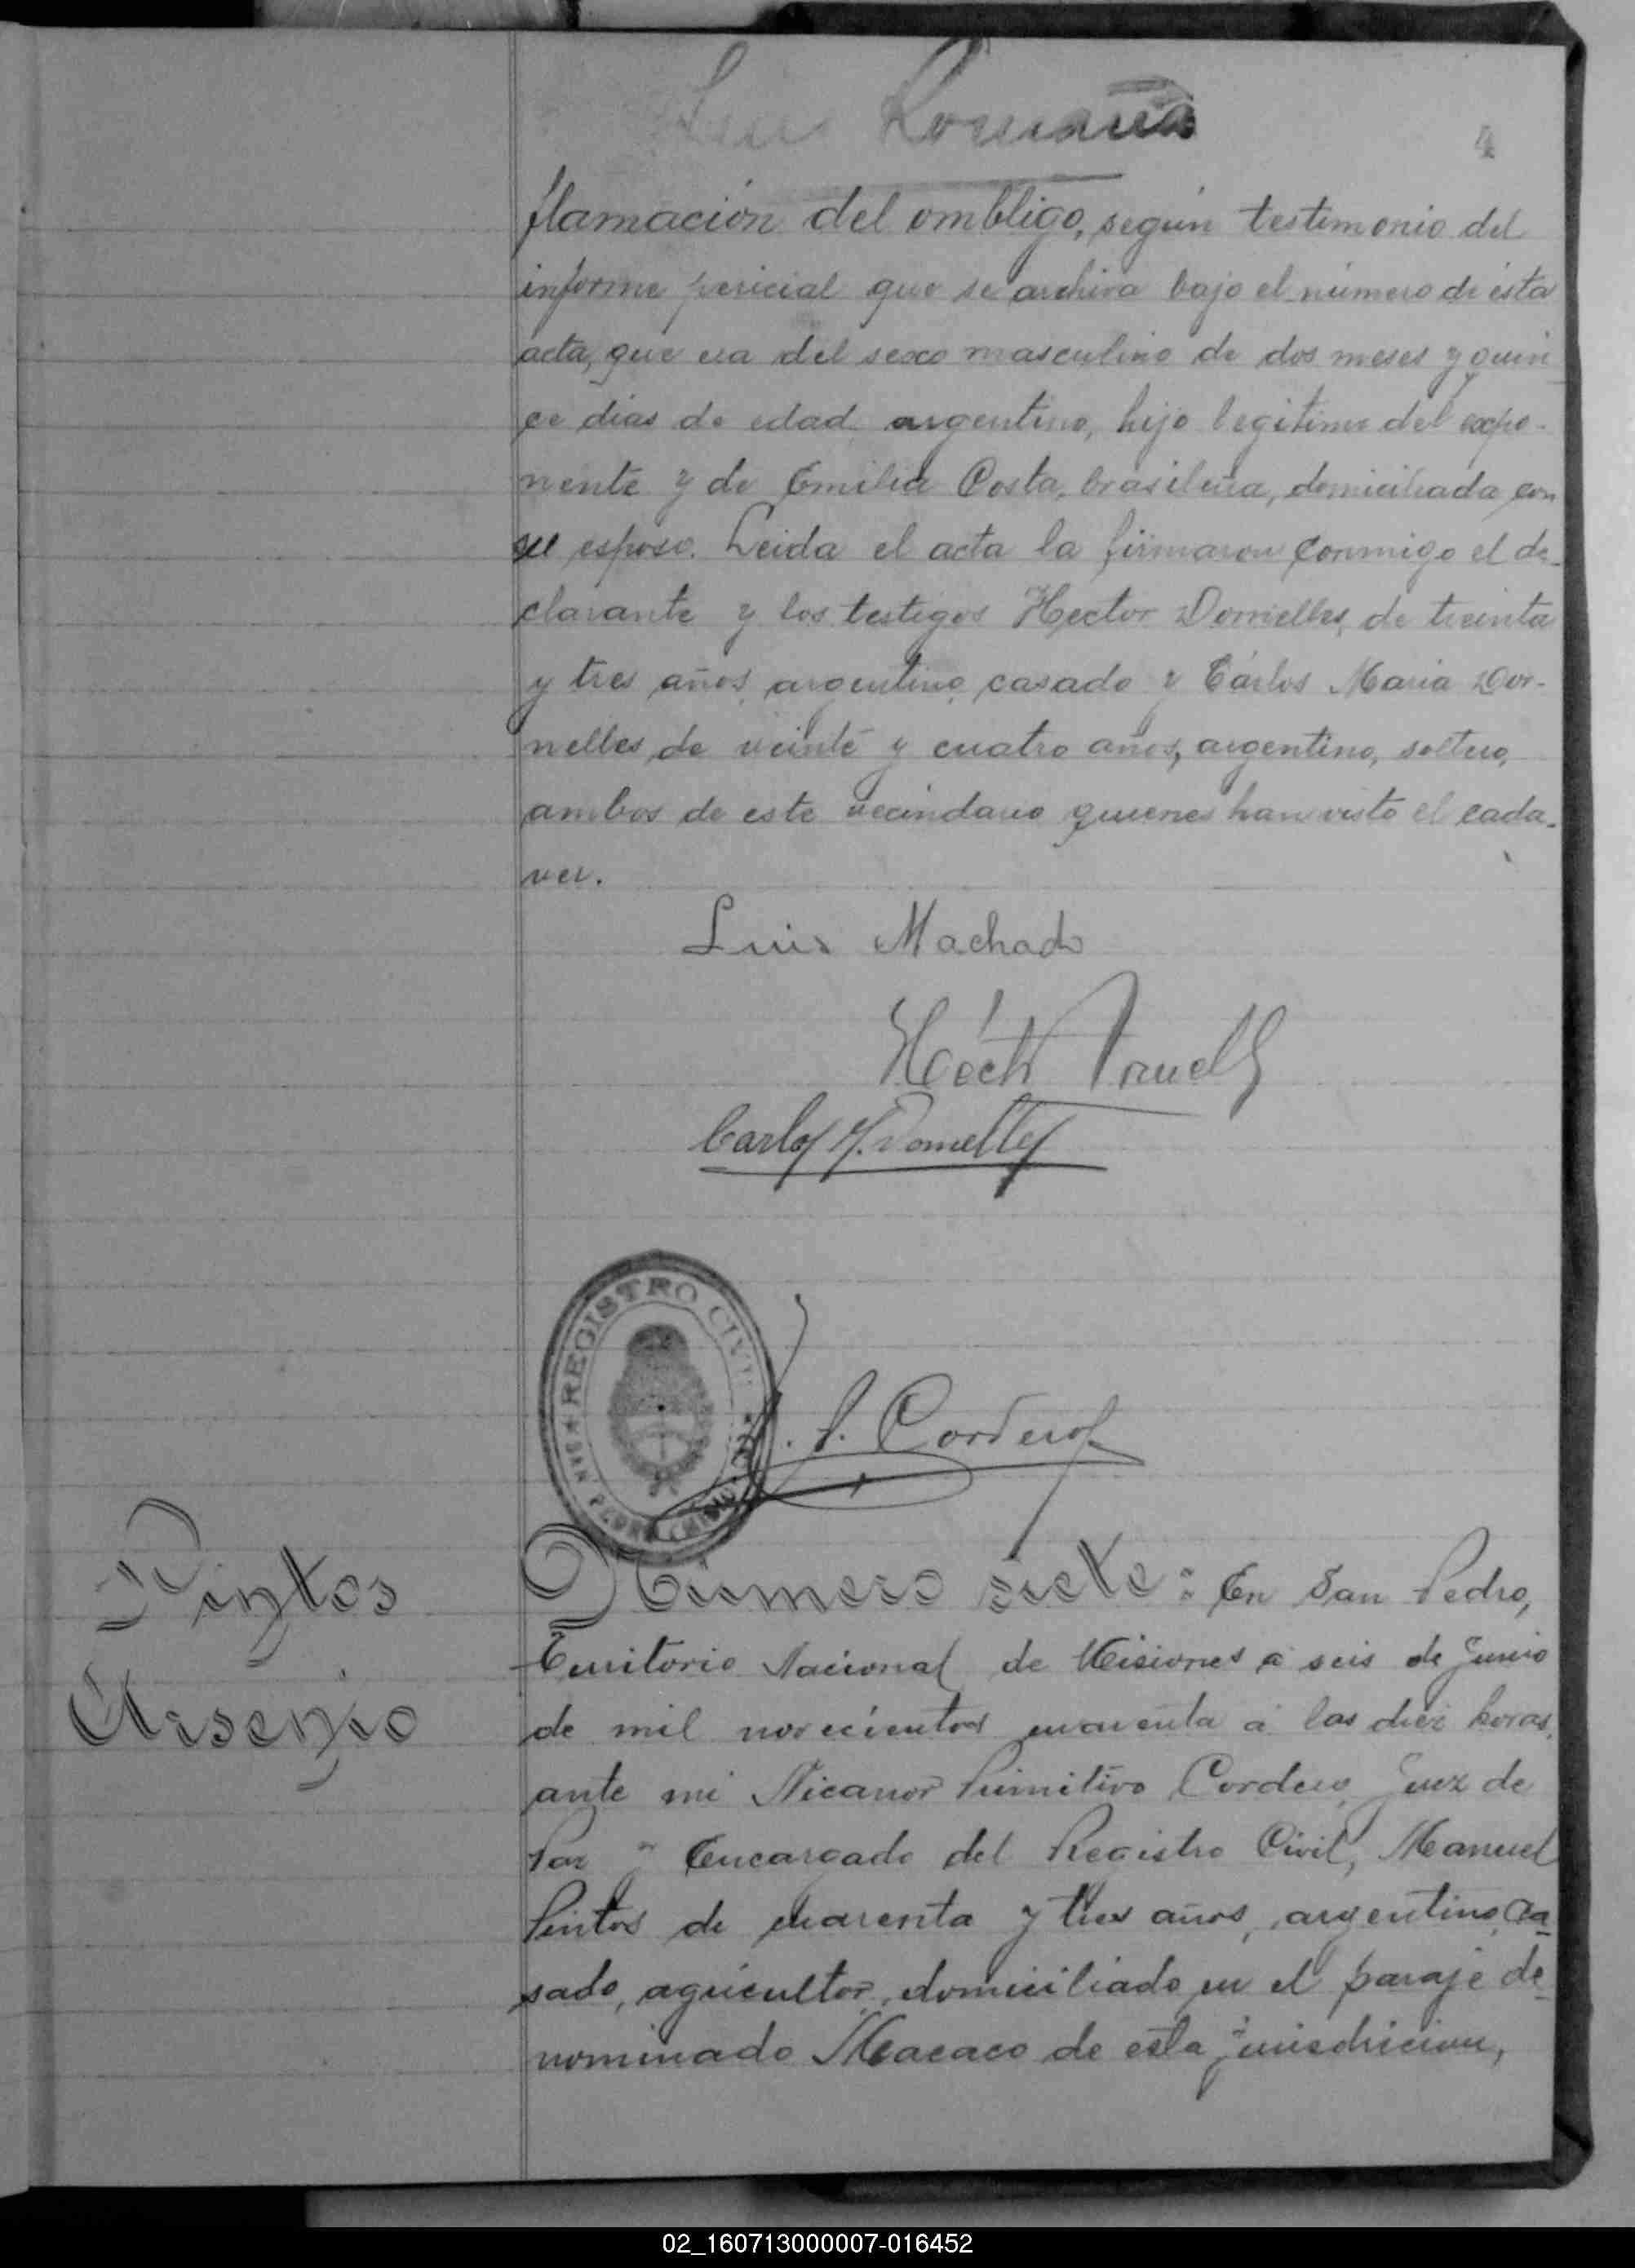 4
flamación del ombligo, según testimonio del
informe pericial que se archiva bajo el número de ésta
acta, que era del sexo masculino de dos meses y quin
ce días de edad argentino, hijo legítimo del expo-
nente y de Emilia Costa, brasileña, domiciliada con
su esposo. Leida el acta la firmaron conmigo el de-
clarante y los testigos Hector Dornelles, de treinta
y tres años, argentino, casado y Cárlos Maria Dor-
nelles, de veinte y cuatro años, argentino, soltero,
ambos de este vecindario quienes han visto el cada-
ver.
Luis Machado
Héctor Dornelles
Carlos M. Dornelles
REGISTRO CIVIL
SAN PEDRO (MISIONES)
N. P. Cordero
Pintos
Arsenio
Número siete: En San Pedro,
Territorio Nacional de Misiones a seis de Junio
de mil novecientos cuarenta a las diez horas,
ante mi Nicanor Primitivo Cordero, Juez de
Paz y Encargado del Registro Civil, Manuel
Pintos de cuarenta y tres años, argentino, ca-
sado, agricultor, domiciliado en el paraje de-
nominado Macaco de esta jurisdricion,
02_160713000007-016452